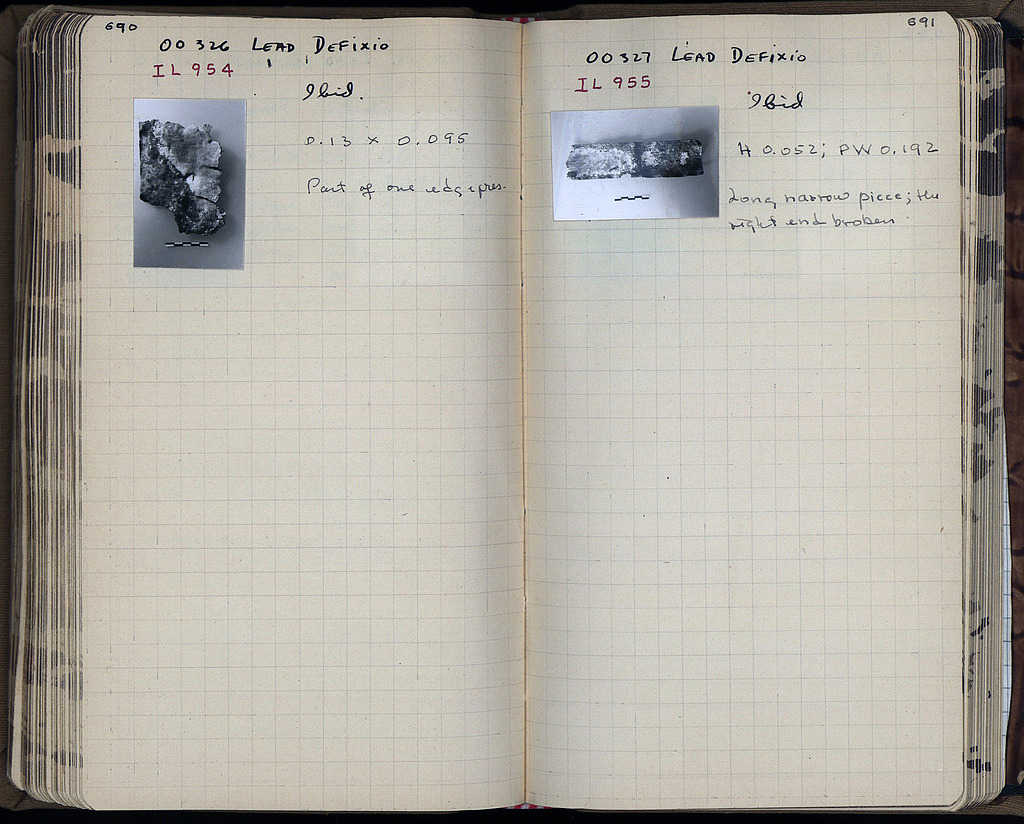 690
OO 326 LEAD DEFIXIO
IL 954
Ibid.
0.13 x 0.095
Part of one edge pres.
691
OO 327 LEAD DEFIXIO
IL 955
Ibid
H 0.052; PW 0.192
Long narrow piece; the
right end broken.